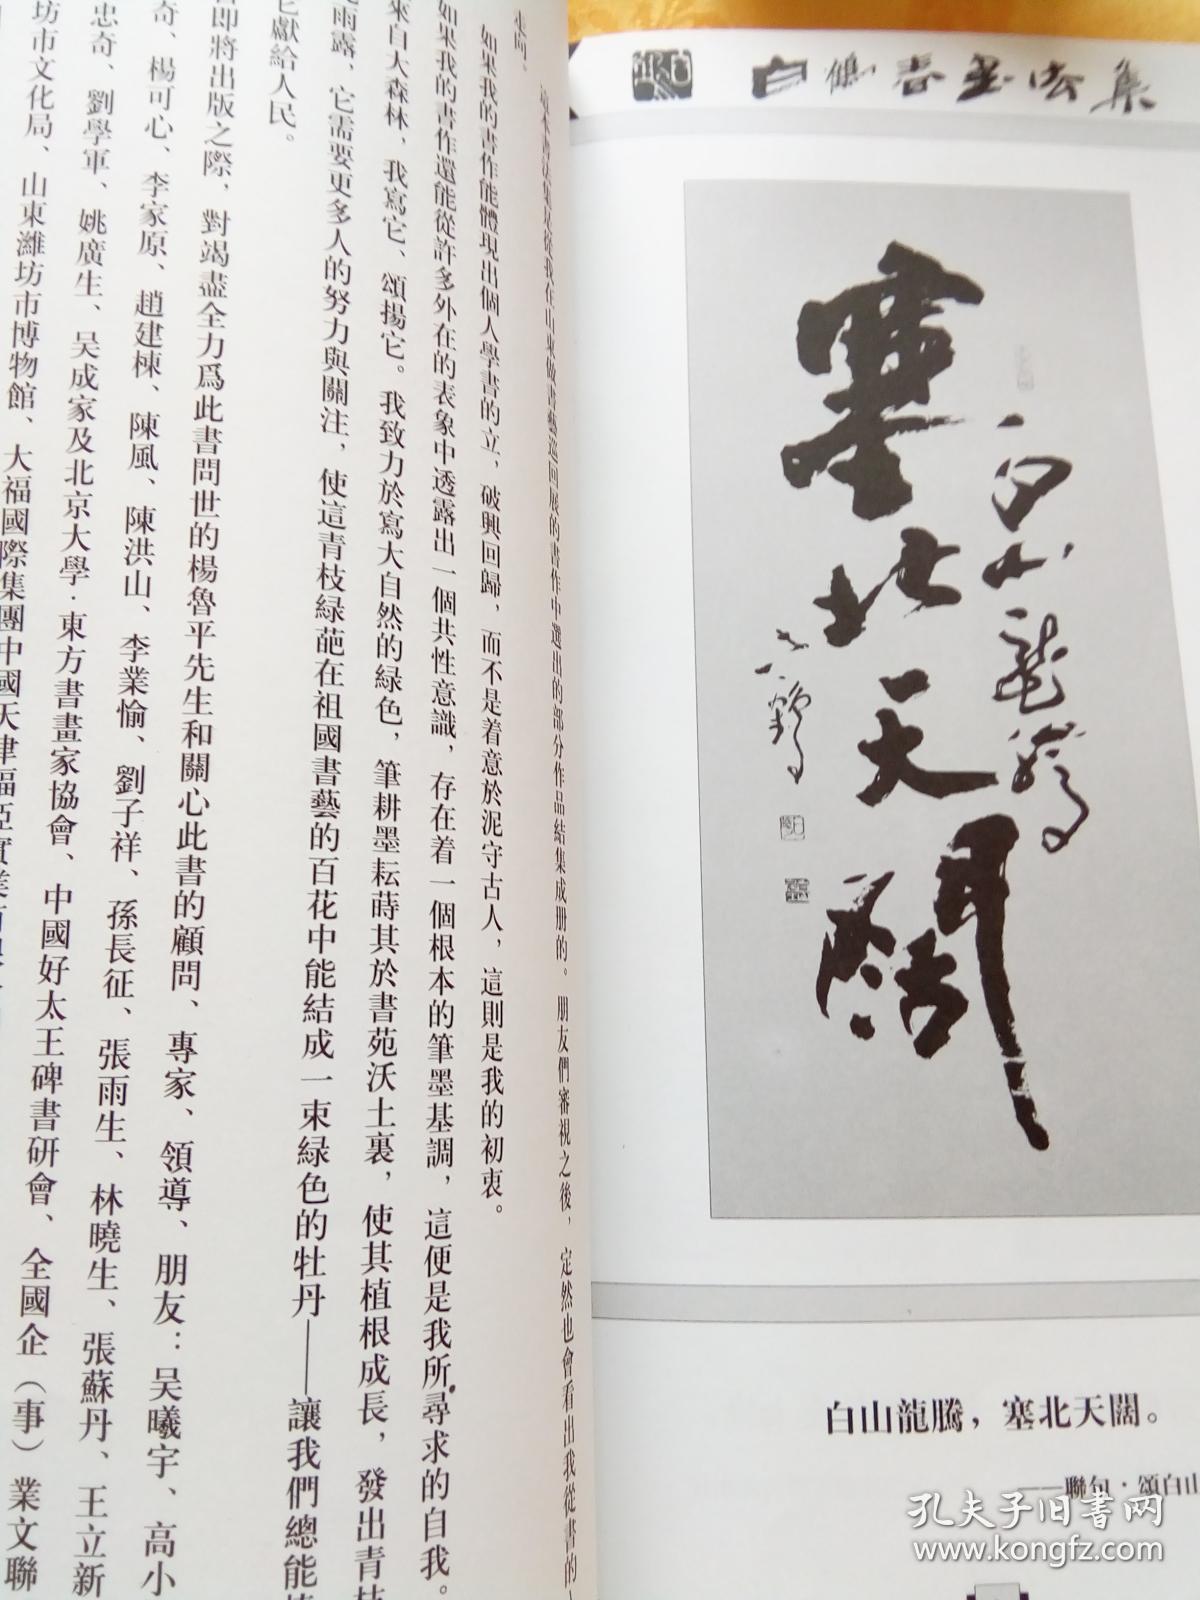 白鶴春書法集
白山龍騰
塞北天闊
白山龍騰，塞北天闊。
——聯句·頌白山
走向。
這本書法集是從我在山東做書藝巡回展的書作中選出的部分作品結集成册的。朋友們審視之後，定然也會看出我從書的
如果我的書作能體現出個人學書的立，破興回歸，而不是着意於泥守古人，這則是我的初衷。
如果我的書作還能從許多外在的表象中透露出一個共性意識，存在着一個根本的筆墨基調，這便是我所尋求的自我。
來自大森林，我寫它、頌揚它。我致力於寫大自然的緑色，筆耕墨耘蒔其於書苑沃土裏，使其植根成長，發出青枝
雨露，它需要更多人的努力與關注，使這青枝緑葩在祖國書藝的百花中能結成一束緑色的牡丹——讓我們總能
它獻給人民。
即將出版之際，對竭盡全力爲此書問世的楊魯平先生和關心此書的顧問、專家、領導、朋友：吴曦宇、高小
奇、楊可心、李家原、趙建棟、陳風、陳洪山、李業愉、劉子祥、孫長征、張雨生、林曉生、張蘇丹、王立新
忠奇、劉學軍、姚廣生、吴成家及北京大學·東方書畫家協會、中國好太王碑書研會、全國企（事）業文聯
坊市文化局、山東濰坊市博物館、大福國際集團中國天津福亞實業
孔夫子旧书网
www.kongfz.com